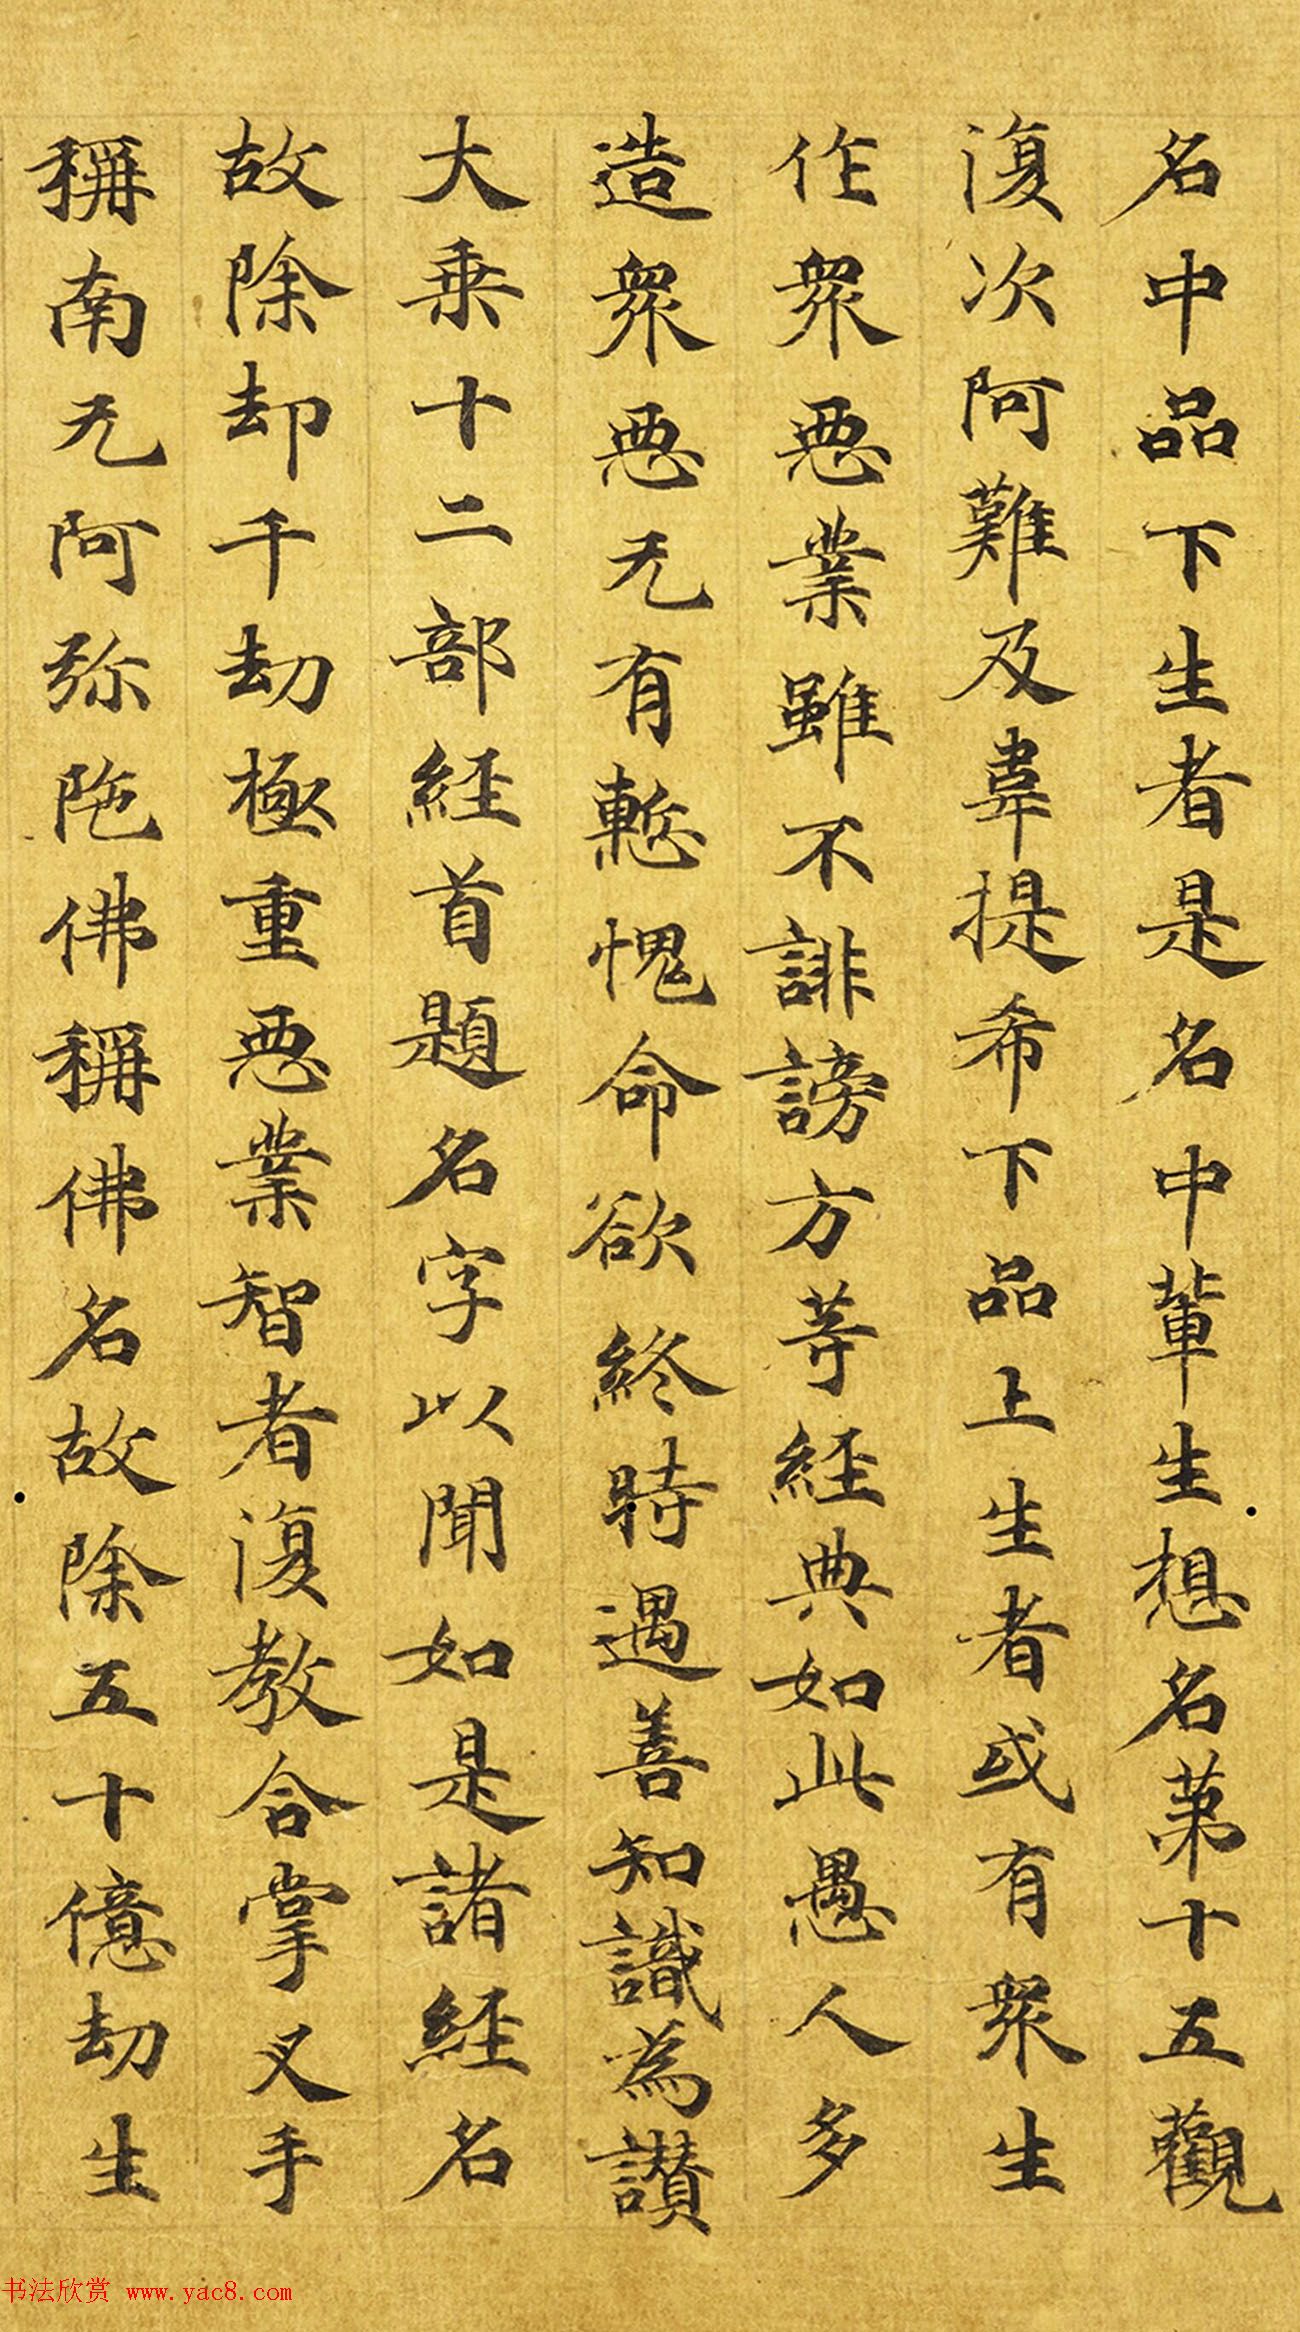 名中品下生者是名中輩生想名第十五觀
復次阿難及韋提希下品上生者或有眾生
作眾惡業雖不誹謗方等經典如此愚人多
造眾惡无有慙愧命欲終時遇善知識為讚
大乗十二部經首題名字以聞如是諸經名
故除却千劫極重惡業智者復教合掌叉手
稱南无阿弥陁佛稱佛名故除五十億劫生
书法欣赏 www.yac8.com